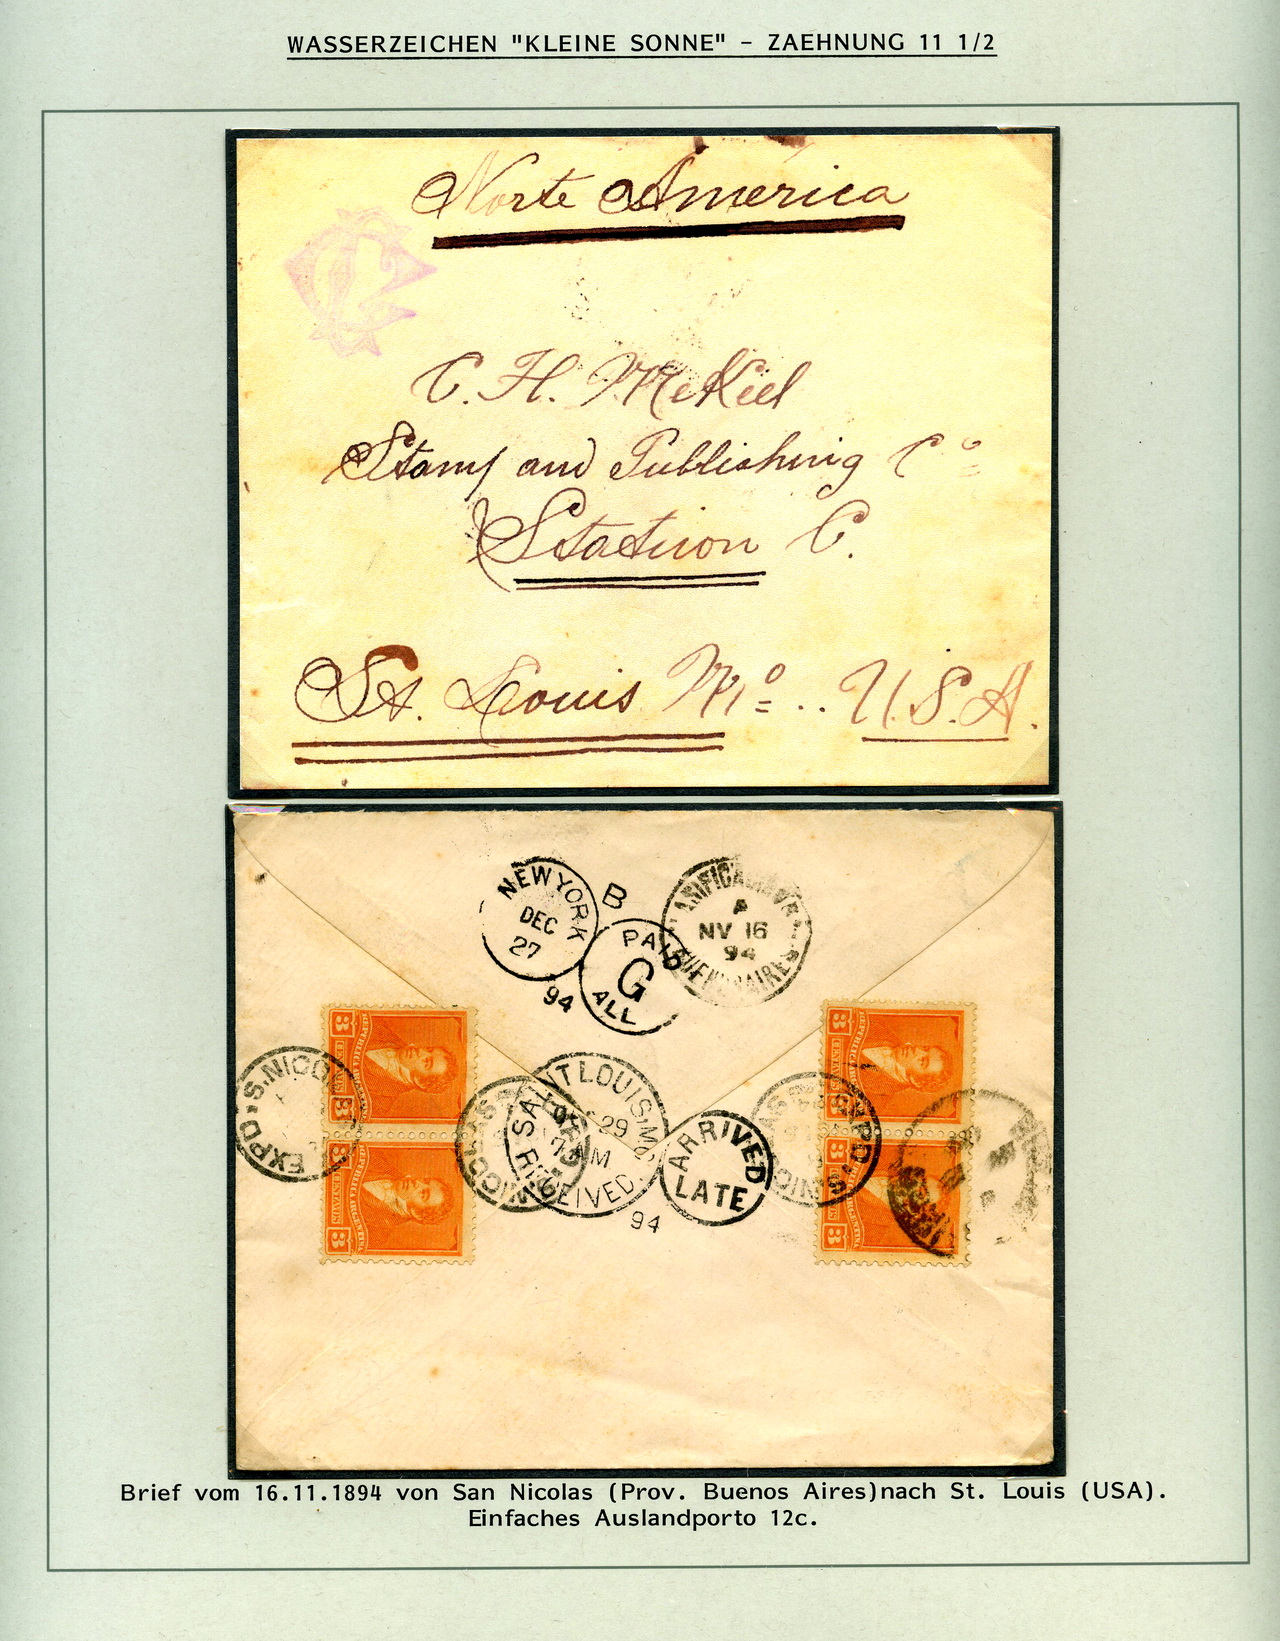 WASSERZEICHEN "KLEINE SONNE" - ZAEHNUNG 11 1/2
Norte America
C. H. MeKeel
Stamp and Publishing Cº
Station C.
St. Louis Mº .. U.S.A.
NEW YORK
DEC
27
94
B
PAID
G
ALL
A
NV 16
94
S.NICOL
EXPD
3
CENTAVOS
3
3
CENTAVOS
3
3
CENTAVOS
3
3
CENTAVOS
3
SAINT LOUIS, MO.
29
7 AM
RECEIVED.
94
ARRIVED
LATE
EXPD
Brief vom 16.11.1894 von San Nicolas (Prov. Buenos Aires)nach St. Louis (USA).
Einfaches Auslandporto 12c.